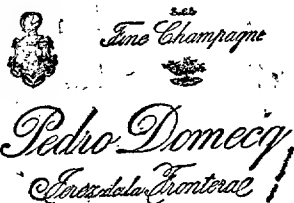 Fine Champagne
Pedro Domecq
Jerez de la Frontera